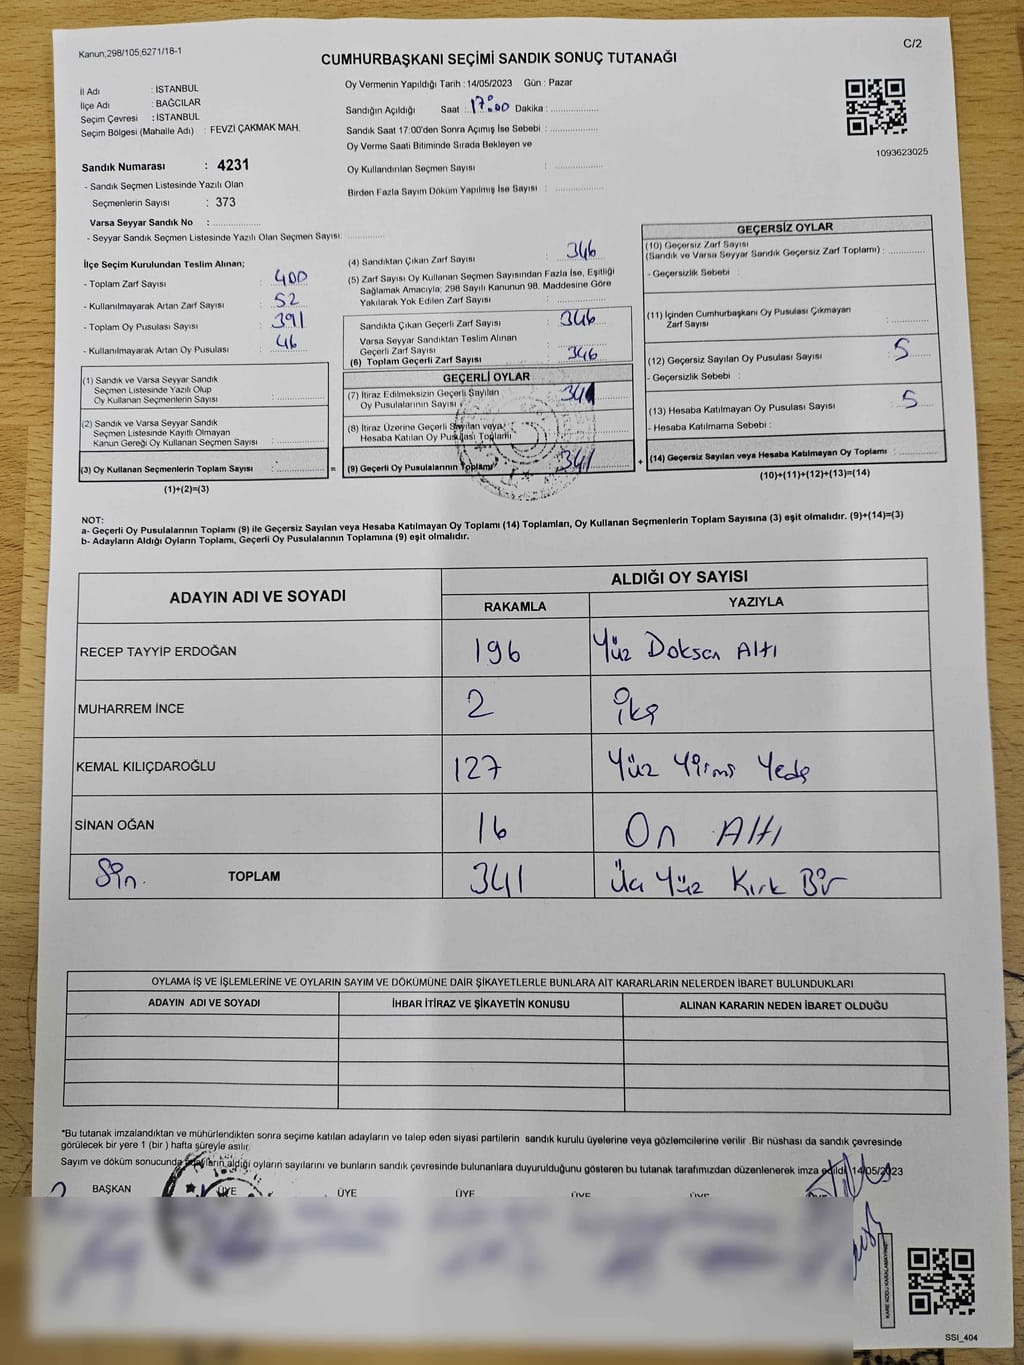 Kanun;298/105;6271/18-1
C/2
CUMHURBAŞKANI SEÇİMİ SANDIK SONUÇ TUTANAĞI
İl Adı : İSTANBUL
İlçe Adı : BAĞCILAR
Seçim Çevresi : İSTANBUL
Seçim Bölgesi (Mahalle Adı) : FEVZİ ÇAKMAK MAH.
Sandık Numarası : 4231
- Sandık Seçmen Listesinde Yazılı Olan
Seçmenlerin Sayısı : 373
Varsa Seyyar Sandık No :
- Seyyar Sandık Seçmen Listesinde Yazılı Olan Seçmen Sayısı:
Oy Vermenin Yapıldığı Tarih : 14/05/2023 Gün : Pazar
Sandığın Açıldığı Saat : 17:00 Dakika :
Sandık Saat 17:00'den Sonra Açımış İse Sebebi :
Oy Verme Saati Bitiminde Sırada Bekleyen ve
Oy Kullandırılan Seçmen Sayısı :
Birden Fazla Sayım Döküm Yapılmış İse Sayısı :
1093623025
İlçe Seçim Kurulundan Teslim Alınan;
- Toplam Zarf Sayısı : 400
- Kullanılmayarak Artan Zarf Sayısı : 52
- Toplam Oy Pusulası Sayısı : 391
- Kullanılmayarak Artan Oy Pusulası : 46
(1) Sandık ve Varsa Seyyar Sandık
Seçmen Listesinde Yazılı Olup
Oy Kullanan Seçmenlerin Sayısı :
(2) Sandık ve Varsa Seyyar Sandık
Seçmen Listesinde Kayıtlı Olmayan
Kanun Gereği Oy Kullanan Seçmen Sayısı :
(3) Oy Kullanan Seçmenlerin Toplam Sayısı : =
(1)+(2)=(3)
(4) Sandıktan Çıkan Zarf Sayısı : 346
(5) Zarf Sayısı Oy Kullanan Seçmen Sayısından Fazla İse, Eşitliği
Sağlamak Amacıyla; 298 Sayılı Kanunun 98. Maddesine Göre
Yakılarak Yok Edilen Zarf Sayısı :
Sandıkta Çıkan Geçerli Zarf Sayısı : 346
Varsa Seyyar Sandıktan Teslim Alınan
Geçerli Zarf Sayısı :
(6) Toplam Geçerli Zarf Sayısı : 346
GEÇERLİ OYLAR
(7) İtiraz Edilmeksizin Geçerli Sayılan
Oy Pusulalarının Sayısı : 341
(8) İtiraz Üzerine Geçerli Sayılan veya
Hesaba Katılan Oy Pusulası Toplamı :
(9) Geçerli Oy Pusulalarının Toplamı : 341 +
GEÇERSİZ OYLAR
(10) Geçersiz Zarf Sayısı
(Sandık ve Varsa Seyyar Sandık Geçersiz Zarf Toplamı) :
- Geçersizlik Sebebi :
(11) İçinden Cumhurbaşkanı Oy Pusulası Çıkmayan
Zarf Sayısı :
(12) Geçersiz Sayılan Oy Pusulası Sayısı : 5
- Geçersizlik Sebebi :
(13) Hesaba Katılmayan Oy Pusulası Sayısı : 5
- Hesaba Katılmama Sebebi :
(14) Geçersiz Sayılan veya Hesaba Katılmayan Oy Toplamı :
(10)+(11)+(12)+(13)=(14)
NOT:
a- Geçerli Oy Pusulalarının Toplamı (9) ile Geçersiz Sayılan veya Hesaba Katılmayan Oy Toplamı (14) Toplamları, Oy Kullanan Seçmenlerin Toplam Sayısına (3) eşit olmalıdır. (9)+(14)=(3)
b- Adayların Aldığı Oyların Toplamı, Geçerli Oy Pusulalarının Toplamına (9) eşit olmalıdır.
ADAYIN ADI VE SOYADI
ALDIĞI OY SAYISI
RAKAMLA YAZIYLA
RECEP TAYYİP ERDOĞAN 196 Yüz Doksan Altı
MUHARREM İNCE 2 İki
KEMAL KILIÇDAROĞLU 127 Yüz Yirmi Yedi
SİNAN OĞAN 16 On Altı
Sin. TOPLAM 341 Üç Yüz Kırk Bir
OYLAMA İŞ VE İŞLEMLERİNE VE OYLARIN SAYIM VE DÖKÜMÜNE DAİR ŞİKAYETLERLE BUNLARA AİT KARARLARIN NELERDEN İBARET BULUNDUKLARI
ADAYIN ADI VE SOYADI İHBAR İTİRAZ VE ŞİKAYETİN KONUSU ALINAN KARARIN NEDEN İBARET OLDUĞU
*Bu tutanak imzalandıktan ve mühürlendikten sonra seçime katılan adayların ve talep eden siyasi partilerin sandık kurulu üyelerine veya gözlemcilerine verilir .Bir nüshası da sandık çevresinde
görülecek bir yere 1 (bir ) hafta süreyle asılır.
Sayım ve döküm sonucunda adayların aldığı oyların sayılarını ve bunların sandık çevresinde bulunanlara duyurulduğunu gösteren bu tutanak tarafımızdan düzenlenerek imza edildi. 14/05/2023
BAŞKAN ÜYE ÜYE ÜYE ÜYE ÜYE
SSI_404